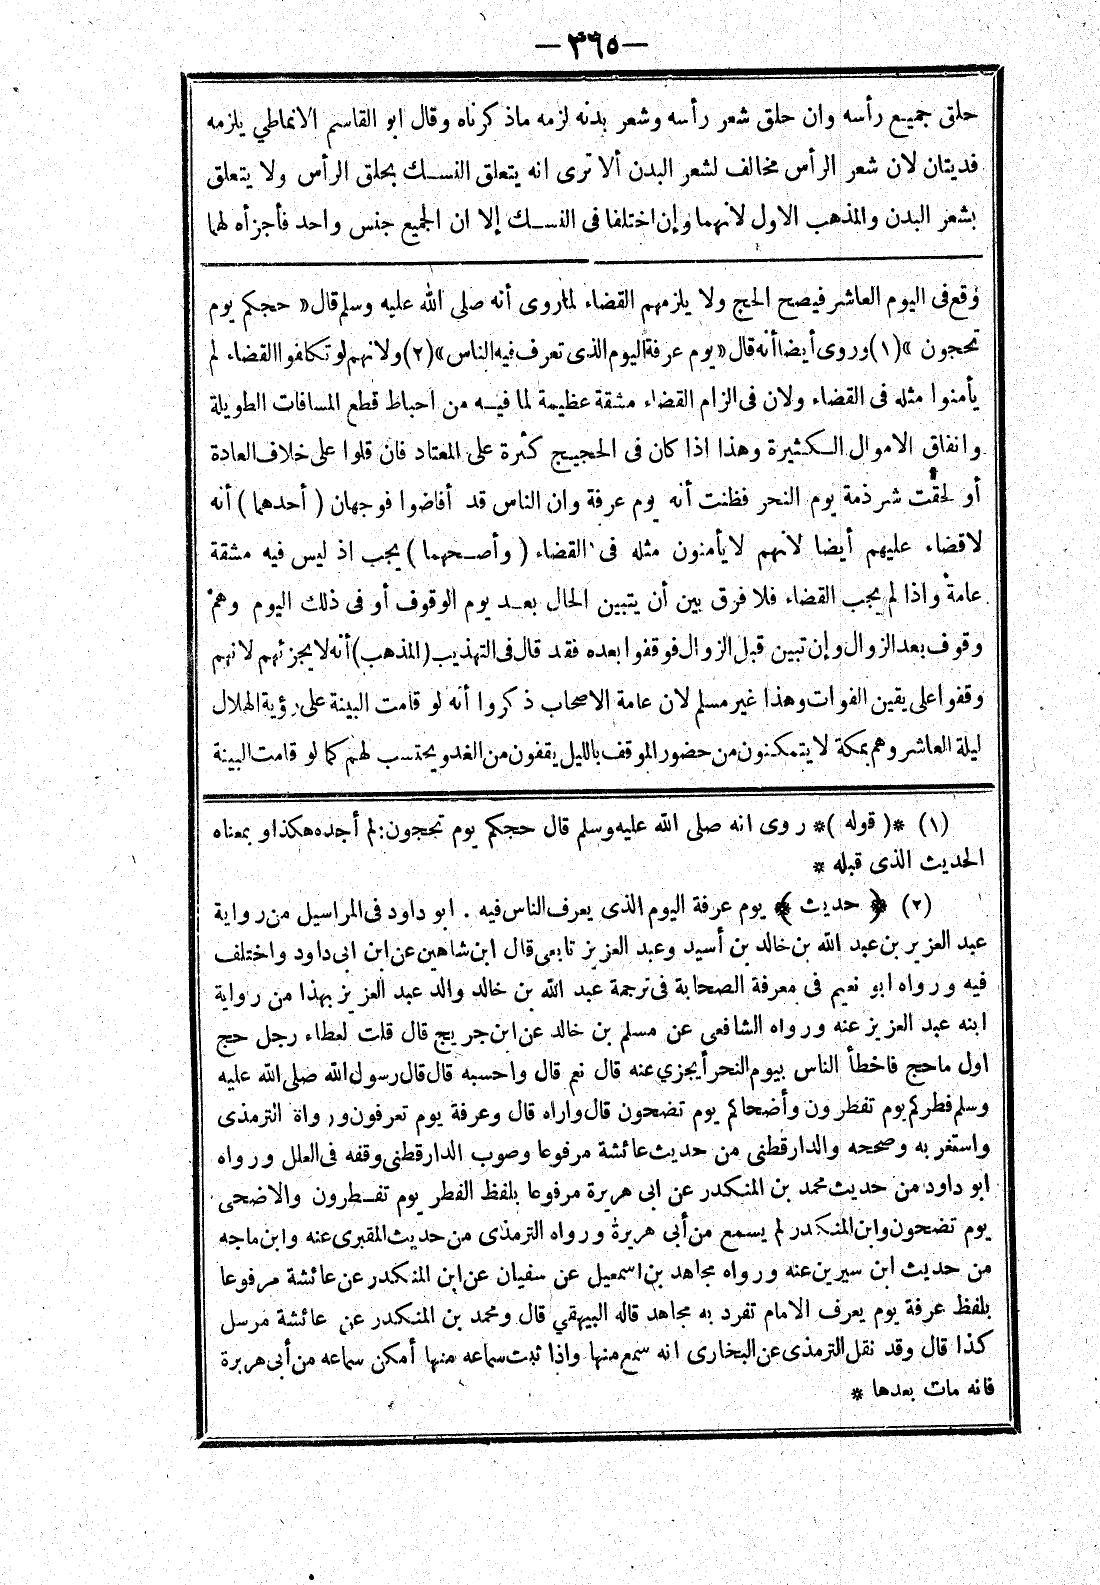 —٣٦٥—
حلق جميع رأسه وان حلق شعر رأسه وشعر بدنه لزمه ماذكرناه وقال ابو القاسم الانماطي يلزمه
فديتان لان شعر الرأس مخالف لشعر البدن ألا ترى انه يتعلق النسك بحلق الرأس ولا يتعلق
بشعر البدن والمذهب الاول لانهما وإن اختلفا فى النسك إلا ان الجميع جنس واحد فأجزأه لهما
وقع فى اليوم العاشر فيصح الحج ولا يلزمهم القضاء لماروى أنه صلى الله عليه وسلم قال « حجكم يوم
تحجون »(١) وروى أيضا أنه قال « يوم عرفة اليوم الذى تعرف فيه الناس »(٢) ولانهم لو تكلفوا القضاء لم
يأمنوا مثله فى القضاء ولان فى الزام القضاء مشقة عظيمة لما فيه من احباط قطع المسافات الطويلة
وانفاق الاموال الكثيرة وهذا اذا كان فى الحجيج كثرة على المعتاد فان قلوا على خلاف العادة
أو لحقت شرذمة يوم النحر فظنت أنه يوم عرفة وان الناس قد أفاضوا فوجهان ( أحدهما ) أنه
لاقضاء عليهم أيضا لانهم لا يأمنون مثله فى القضاء ( وأصحهما ) يجب اذ ليس فيه مشقة
عامة واذا لم يجب القضاء فلا فرق بين أن يتبين الحال بعد يوم الوقوف أو فى ذلك اليوم وهم
وقوف بعد الزوال وإن تبين قبل الزوال فوقفوا بعده فقد قال فى التهذيب (المذهب) أنه لا يجزئهم لانهم
وقفوا على يقين الفوات وهذا غير مسلم لان عامة الاصحاب ذكروا أنه لو قامت البينة على رؤية الهلال
ليلة العاشر وهم بمكة لا يتمكنون من حضور الموقف بالليل يقفون من الغد ويحتسب لهم كما لو قامت البينة
(١) *( قوله )* روى انه صلى الله عليه وسلم قال حجكم يوم تحجون: لم أجده هكذا وبمعناه
الحديث الذى قبله *
(٢) * ﴿ حديث ﴾ * يوم عرفة اليوم الذى يعرف الناس فيه . ابو داود فى المراسيل من رواية
عبد العزيز بن عبد الله بن خالد بن أسيد وعبد العزيز تابعى قال ابن شاهين عن ابن ابى داود واختلف
فيه ورواه ابو نعيم فى معرفة الصحابة فى ترجمة عبد الله بن خالد والد عبد العزيز بهذا من رواية
ابنه عبد العزيز عنه ورواه الشافعى عن مسلم بن خالد عن ابن جريج قال قلت لعطاء رجل حج
اول ماحج فاخطأ الناس بيوم النحر أيجزي عنه قال نعم قال واحسبه قال قال رسول الله صلى الله عليه
وسلم فطركم يوم تفطرون وأضحاكم يوم تضحون قال واراه قال وعرفة يوم تعرفون ورواة الترمذى
واستغربه وصححه والدارقطنى من حديث عائشة مرفوعا وصوب الدارقطنى وقفه فى العلل ورواه
ابو داود من حديث محمد بن المنكدر عن ابى هريرة مرفوعا بلفظ الفطر يوم تفطرون والاضحى
يوم تضحون وابن المنكدر لم يسمع من أبى هريرة ورواه الترمذى من حديث المقبرى عنه وابن ماجه
من حديث ابن سيرين عنه ورواه مجاهد بن اسمعيل عن سفيان عن ابن المنكدر عن عائشة مرفوعا
بلفظ عرفة يوم يعرف الامام تفرد به مجاهد قاله البيهقي قال ومحمد بن المنكدر عن عائشة مرسل
كذا قال وقد نقل الترمذى عن البخارى انه سمع منها واذا ثبت سماعه منها أمكن سماعه من أبى هريرة
فانه مات بعدها *